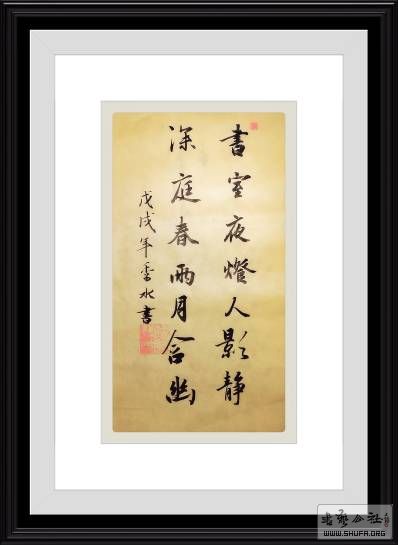 書室夜燈人影靜
深庭春雨月含幽
戊戌年雲水書
WWW.SHUFA.ORG